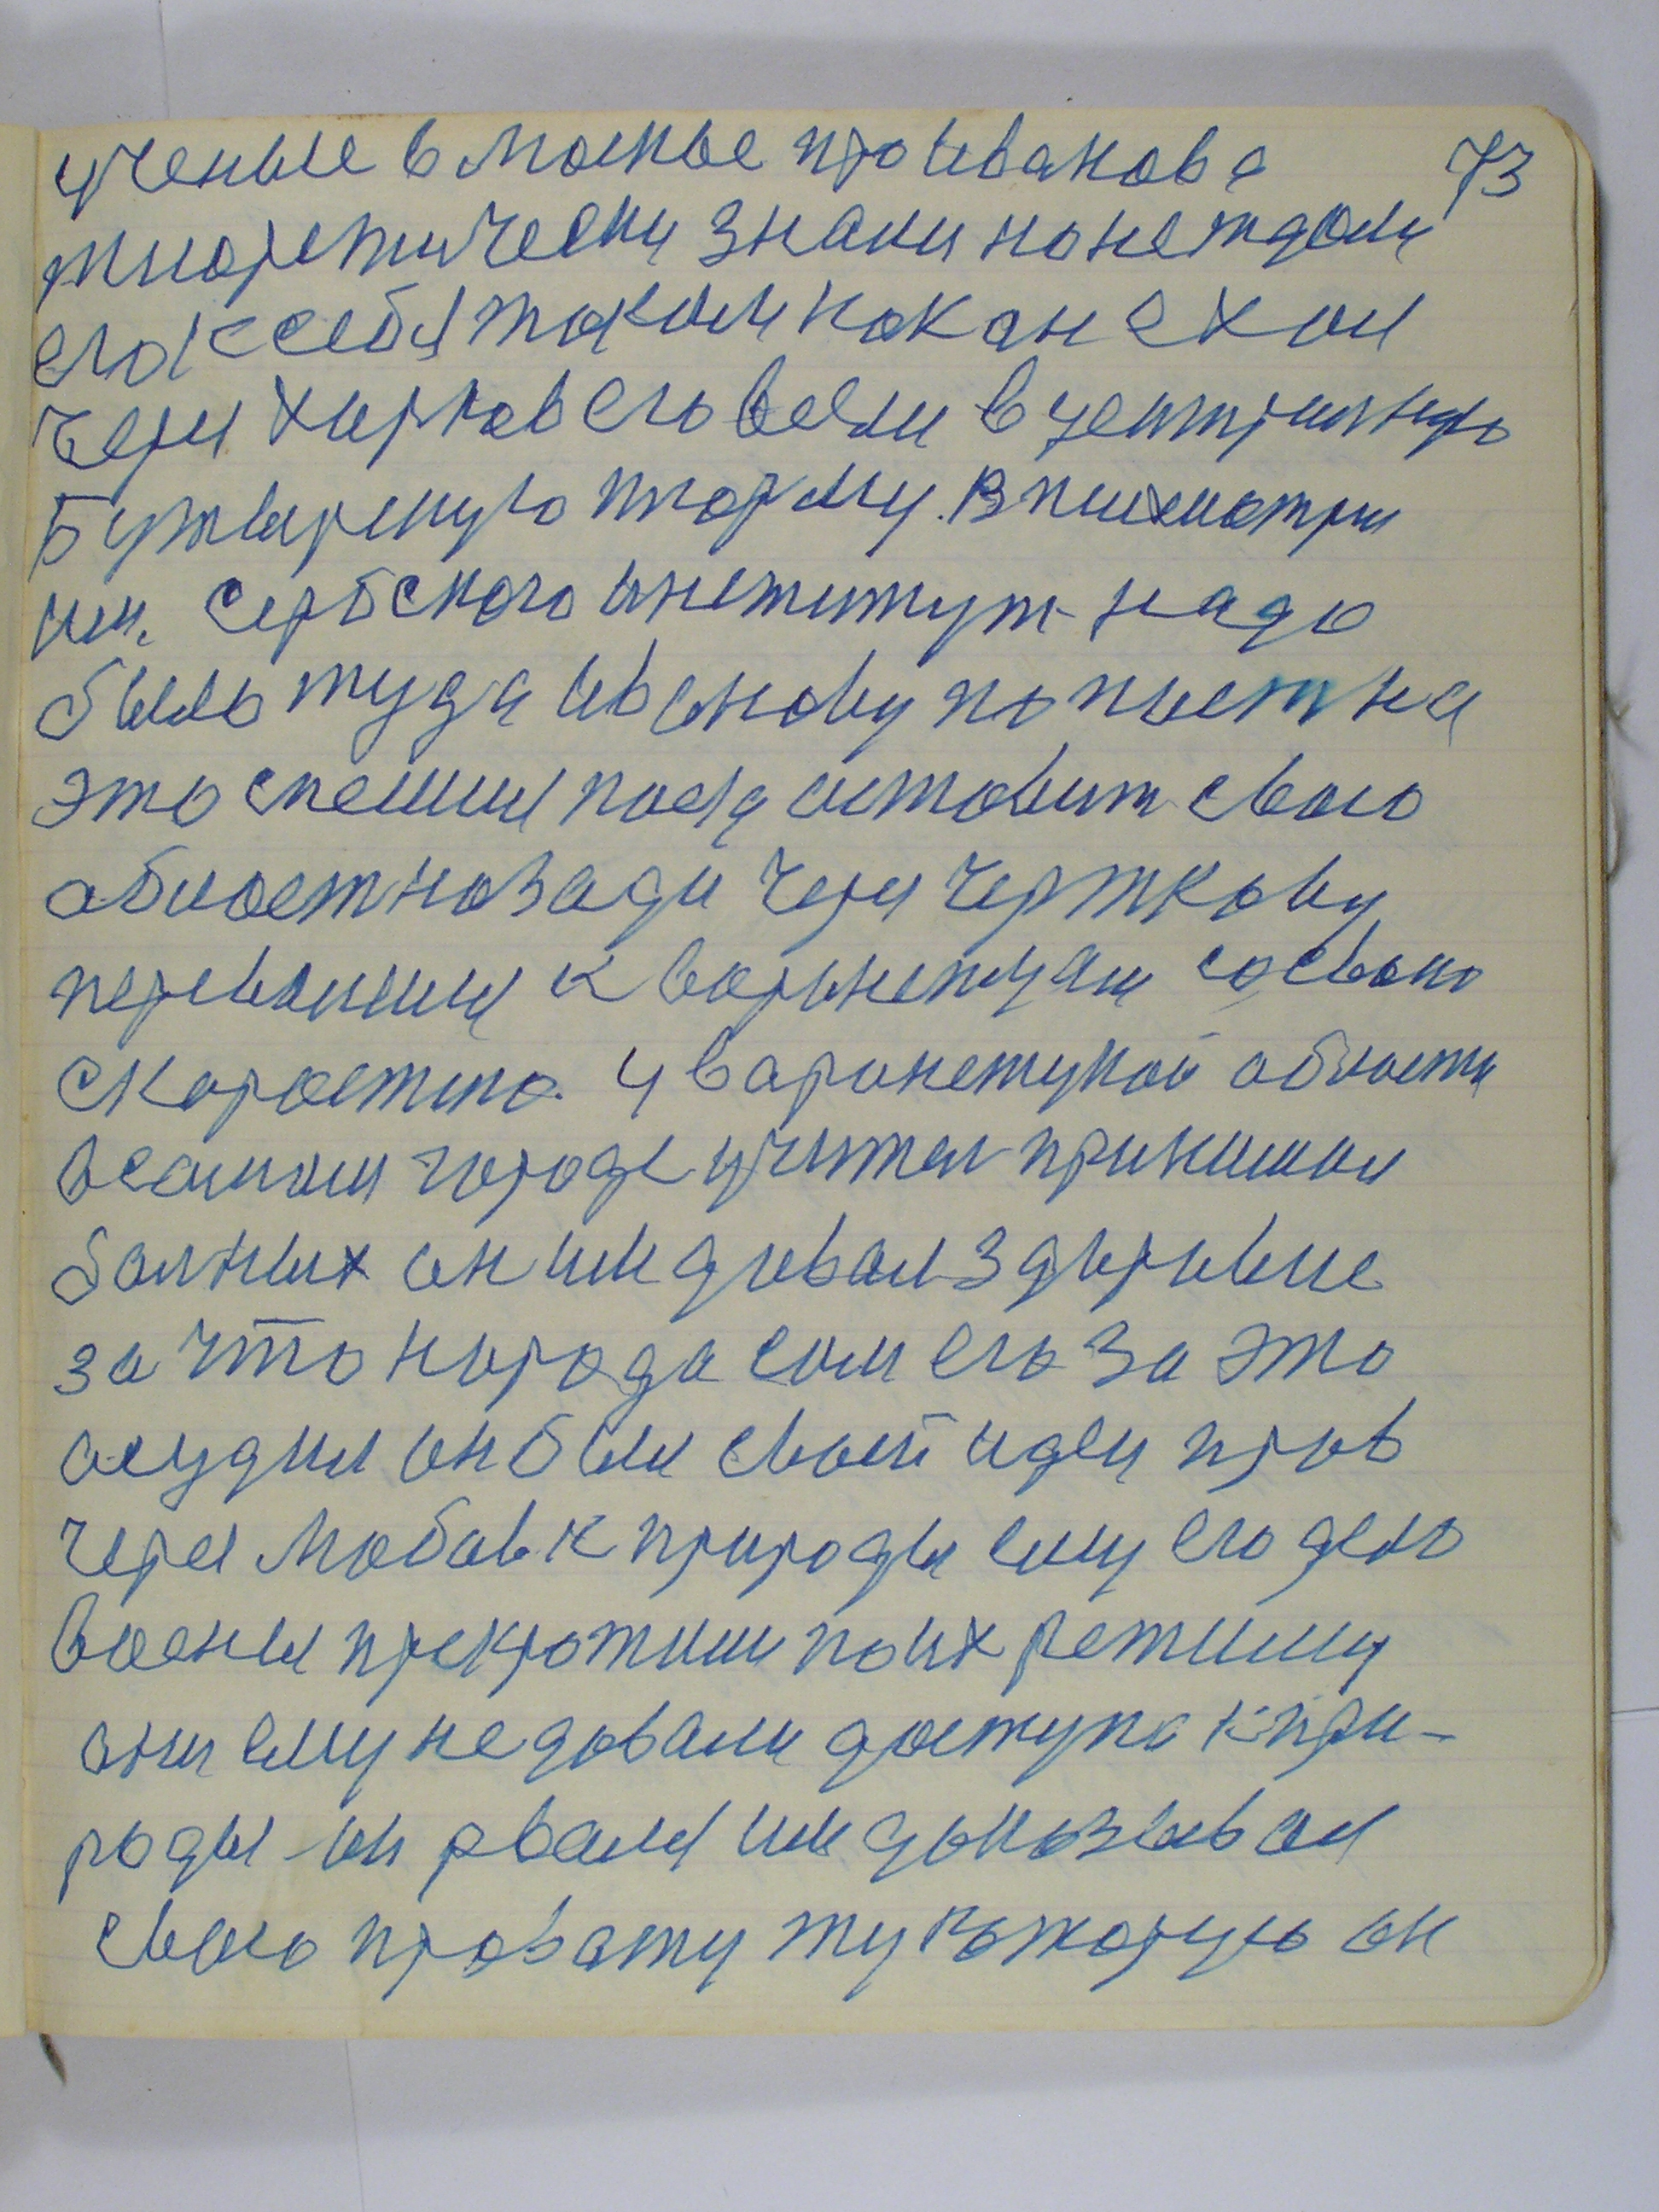 ученые в Москве про Иванова 73
тиоретически знали но не ждали
его к себя таким как он ехал
через харков его везли в центрилную
Бутвиреную тюрму. В психиатри
им. Сербского институт надо
было туда Иванову попаст на
это спешил поезд оставит свою
област назади через черткову
перевалили к воронешцам со свою
скоростю. у варонежукой области
в самом городе учител принимал
болных он им давал здоровие
за что народа сам его за это
осудил он был своей идеи прав
через любов к природы ему его дело
военыя прекротили по их режиму
они ему не довали доступа к при-
роды он рвался им доказывал
свою правату ту которую он